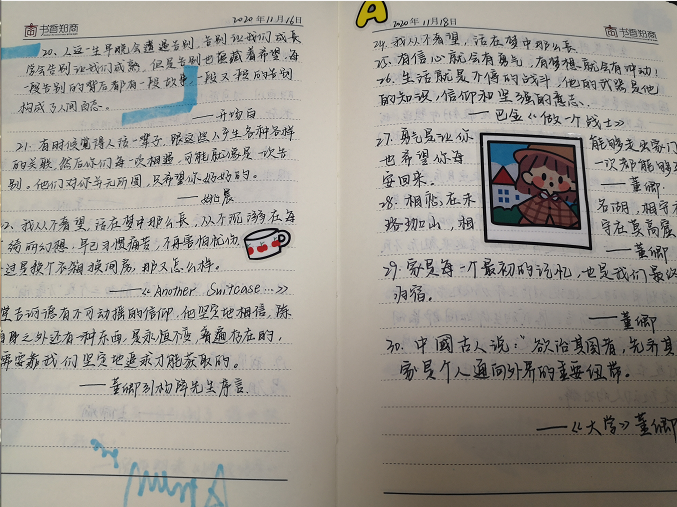 2020年11月16日
书香知商
20、人这一生早晚会遭遇告别,告别让我们成长
学会告别让我们成熟,但是告别也蕴藏着希望,每
一段告别的背后都有一段故事,一段又一段的告别
构成了人间百态。
——开场白
21、有时候觉得人活一辈子,跟这些人产生各种各样
的关联,然后你们每一次相遇,可能就像是一次告
别。他们对你并无所图,只希望你好好的。
——姚晨
2、我从不奢望,活在梦中那么长,从不沉溺在每
绮丽幻想,早已习惯痛苦,不再害怕忧伤
过是换个衣箱换间房,那又怎么样。
——《Another Suitcase...》
坚定地相信,陈
之外还有一种东西,是永恒不变,普遍存在的,
需要靠我们坚定地追求才能获取的。
——董卿引杨绛先生序言
A
2020年11月18日
书香知商
24、我从不奢望,活在梦中那么长
25、有信心就会有勇气,有梦想就会有冲动!
26、生活就是不停的战斗,他的武器是他
的知识,信仰和坚强的意志。
——巴金《做一个战士》
27、勇气是让你 能够走出家门
也希望你每 一次都能够
安回来。 ——董卿
28、相恋在未 名湖,相守
珞珈山,相 守在莫高窟
——董卿
29、家是每一个最初的记忆,也是我们最终
归宿。
——董卿
30、中国古人说:“欲治其国者,先齐其
家是个人通向外界的重要纽带。
——《大学》董卿